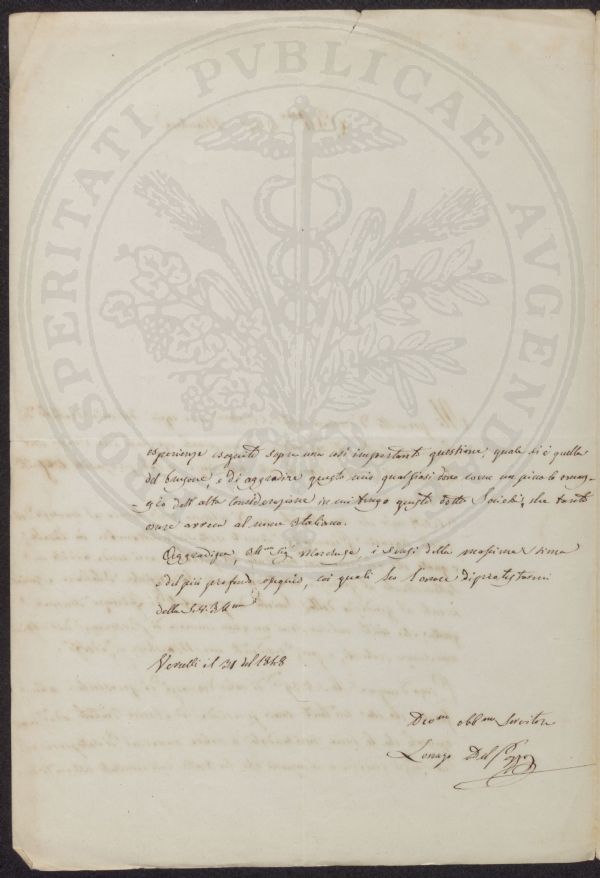 PROSPERITATI PVBLICAE AVGENDAE
esperienze eseguite sopra una così importante questione, quale si è quella
del brusone, e di aggradire questo mio qualsiasi dono come un piccolo omag-
-gio dell'alta considerazione in cui tengo questa dotta Società, che tanto
onore arreca al nome Italiano.
Aggradisca, Ill.mo Sig. Marchese, i sensi della massima stima
e del più profondo ossequio, coi quali ho l'onore di protestarmi
della S. V. Ill.ma
Vercelli il 31 del 1848
Dev.mo obb.mo Servitore
Del Pozzo